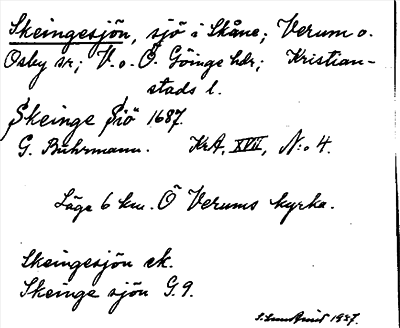 Skeingesjön, sjö i Skåne; Verum o.
Osby sr; V. o. Ö. Göinge hdr; Kristian-
stads l.
Skeinge Siö 1687.
G. Buhrmann. KrA, XVII, N:o 4.
Läge 6 km. Ö Verums kyrka.
Skeingesjön ek.
Skeinge sjön G.9.
1937.